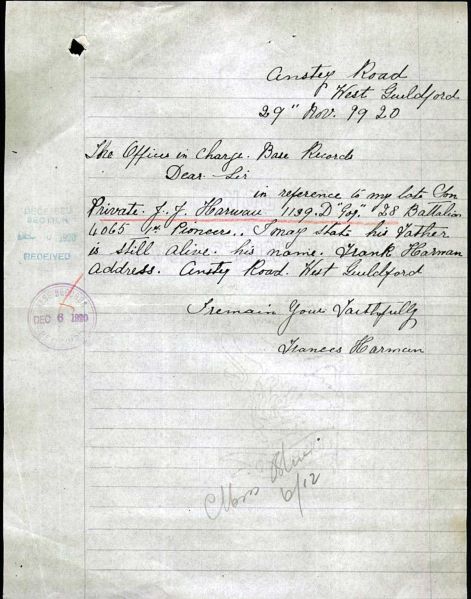 Anstey Road
West Guildford
29" Nov. 1920
The Officer in Charge. Base Records
Dear Sir
in reference to my late Son
Private. F. J. Harman 1139. D "Coy." 28 Battalion
4065 1st Pioneers., I may state his Father
is still alive. his name. Frank Harman
address. Anstey Road. West Guildford
I remain Your Faithfully
Frances Harman
DECEASED
SECTION
1920
RECEIVED
BASE RECORDS
DEC 6 1920
6/12